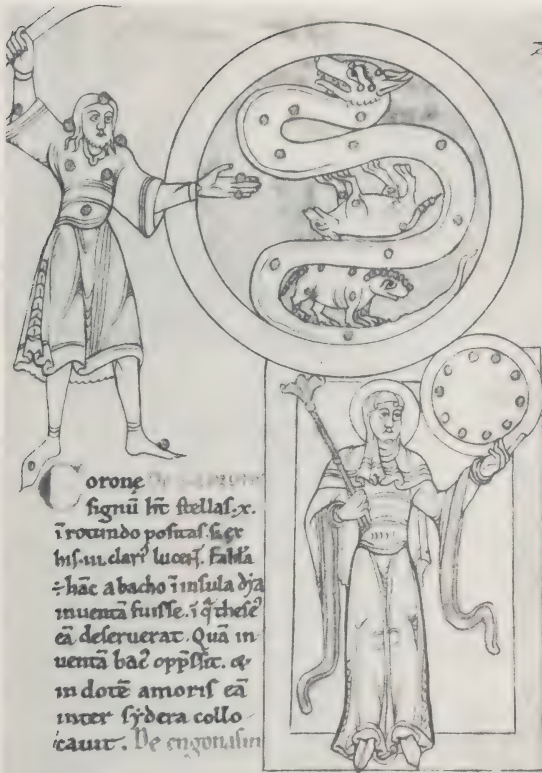 Corone
ſignū hr̄ ſtellaſ .x.
ī rotundo poſitaſ. ſꝫ ex
hiſ .iii. clariꝰ lucen̄t. fabl̄a
÷ hāc a bacho ī inſula dya
inuentā fuiſſe. ī q̄ theſeꝰ
eā deſeruerat. Quā in
uentā bacꝰ opp̄ſſit. &
in dotē amoriſ eā
inter ſydera collo
cauit. De engonaſin